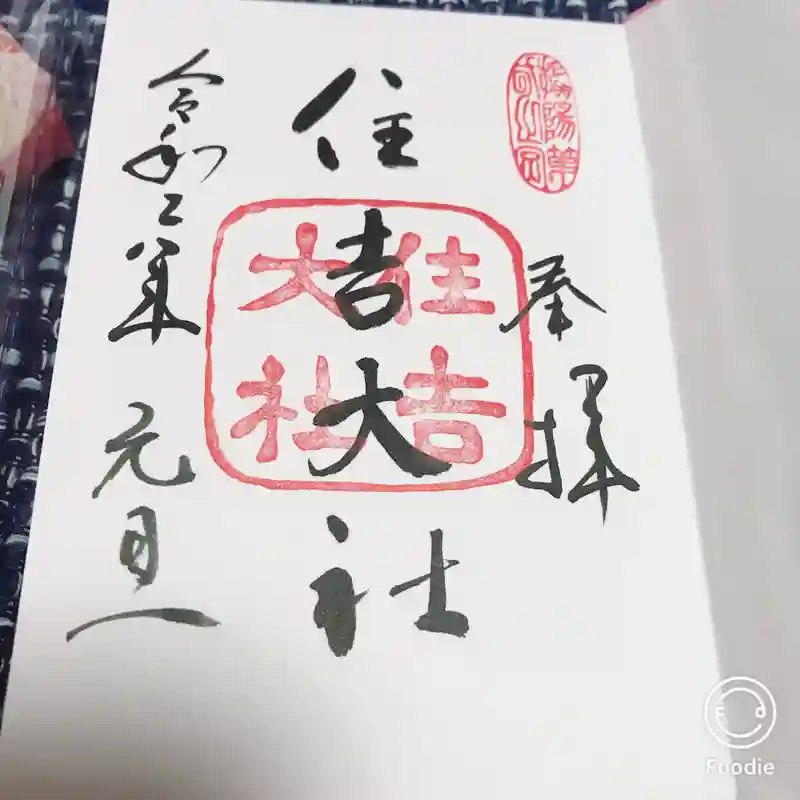 奉拝
住吉大社
住吉大社
令和二年 元旦
Foodie